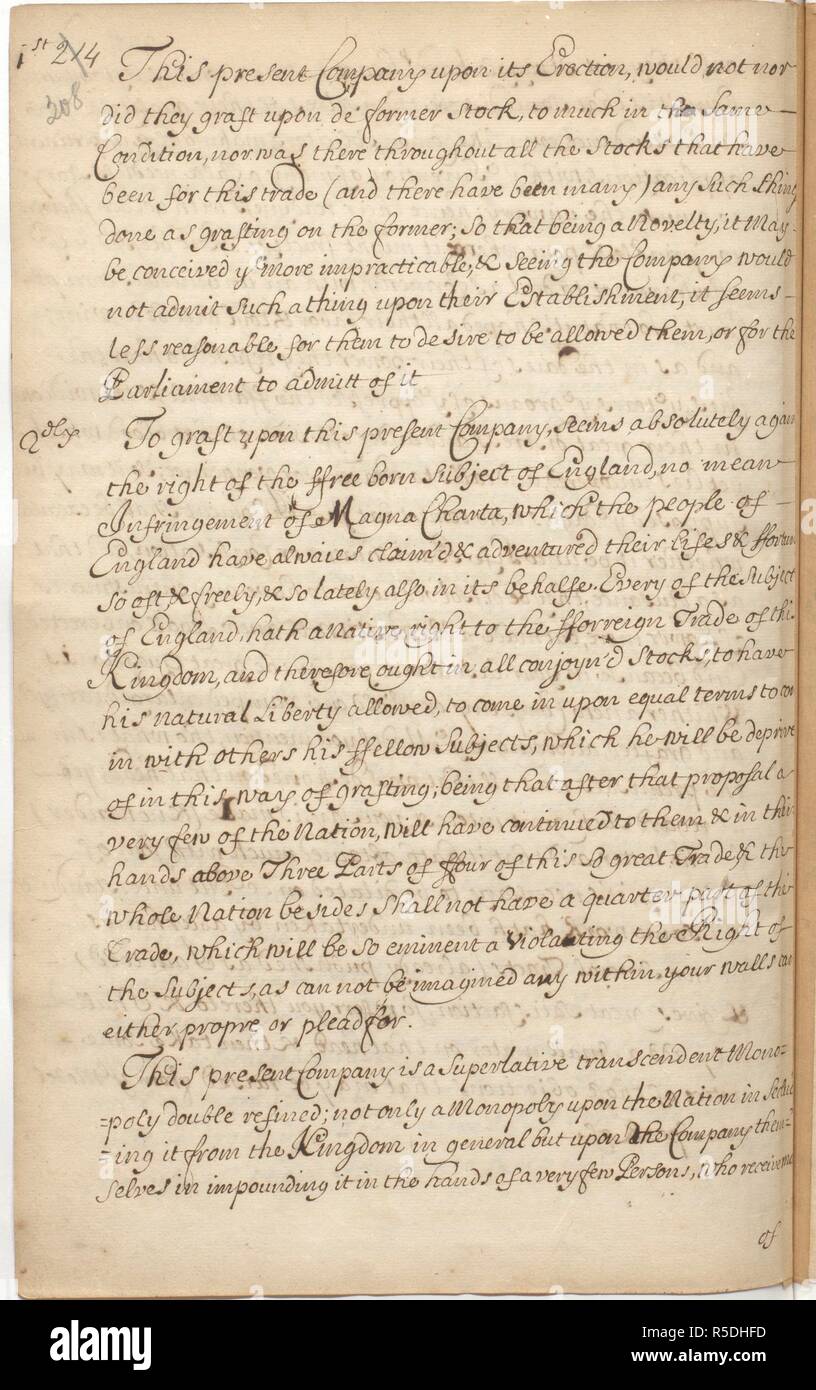 1st 214
308
This present Company upon its Erection, would not nor
did they graft upon de former stock, to much in the same
Condition, nor was there throughout all the Stocks that have
been for this trade (and there have been many) any such thing
done as grafting on the former; so that being a Novelty, it May
be conceived ye more impracticable, & seeing the Company would
not admit such a thing upon their Establishment, it seems
less reasonable, for them to desire to be allowed them, or for the
Parliament to admitt of it
2dly
To graft upon this present Company, seems absolutely again
the right of the ffree born Subject of England, no mean
Infringement of Magna Charta, which the people of
England have alwaies claim'd & adventured their lifes & ffortun
so oft & freely, & so lately also in its behalfe. Every of the Subject
of England, hath a Native right to the fforreign Trade of this
Kingdom, and therefore ought in all conjoyn'd Stocks, to have
his natural Liberty allowed, to come in upon equal terms to com
in with others his ffellow Subjects, which he will be deprive
of in this way of grafting; being that after that proposal a
very few of the Nation, will have continued to them & in their
hands above Three Parts of ffour of this so great Trade & the
whole Nation besides Shall not have a quarter part of the
Trade, which will be so eminent a Violating the Right of
the Subjects, as can not be imagined any within your walls can
either propre or plead for.
This present Company is a Superlative transcendent Mono=
=poly double refined; not only a Monopoly upon the Nation in Seclud
=ing it from the Kingdom in general but upon the Company them=
selves in impounding it in the hands of a very few Persons, who receive
of
alamy
Image ID: R5DHFD
www.alamy.com